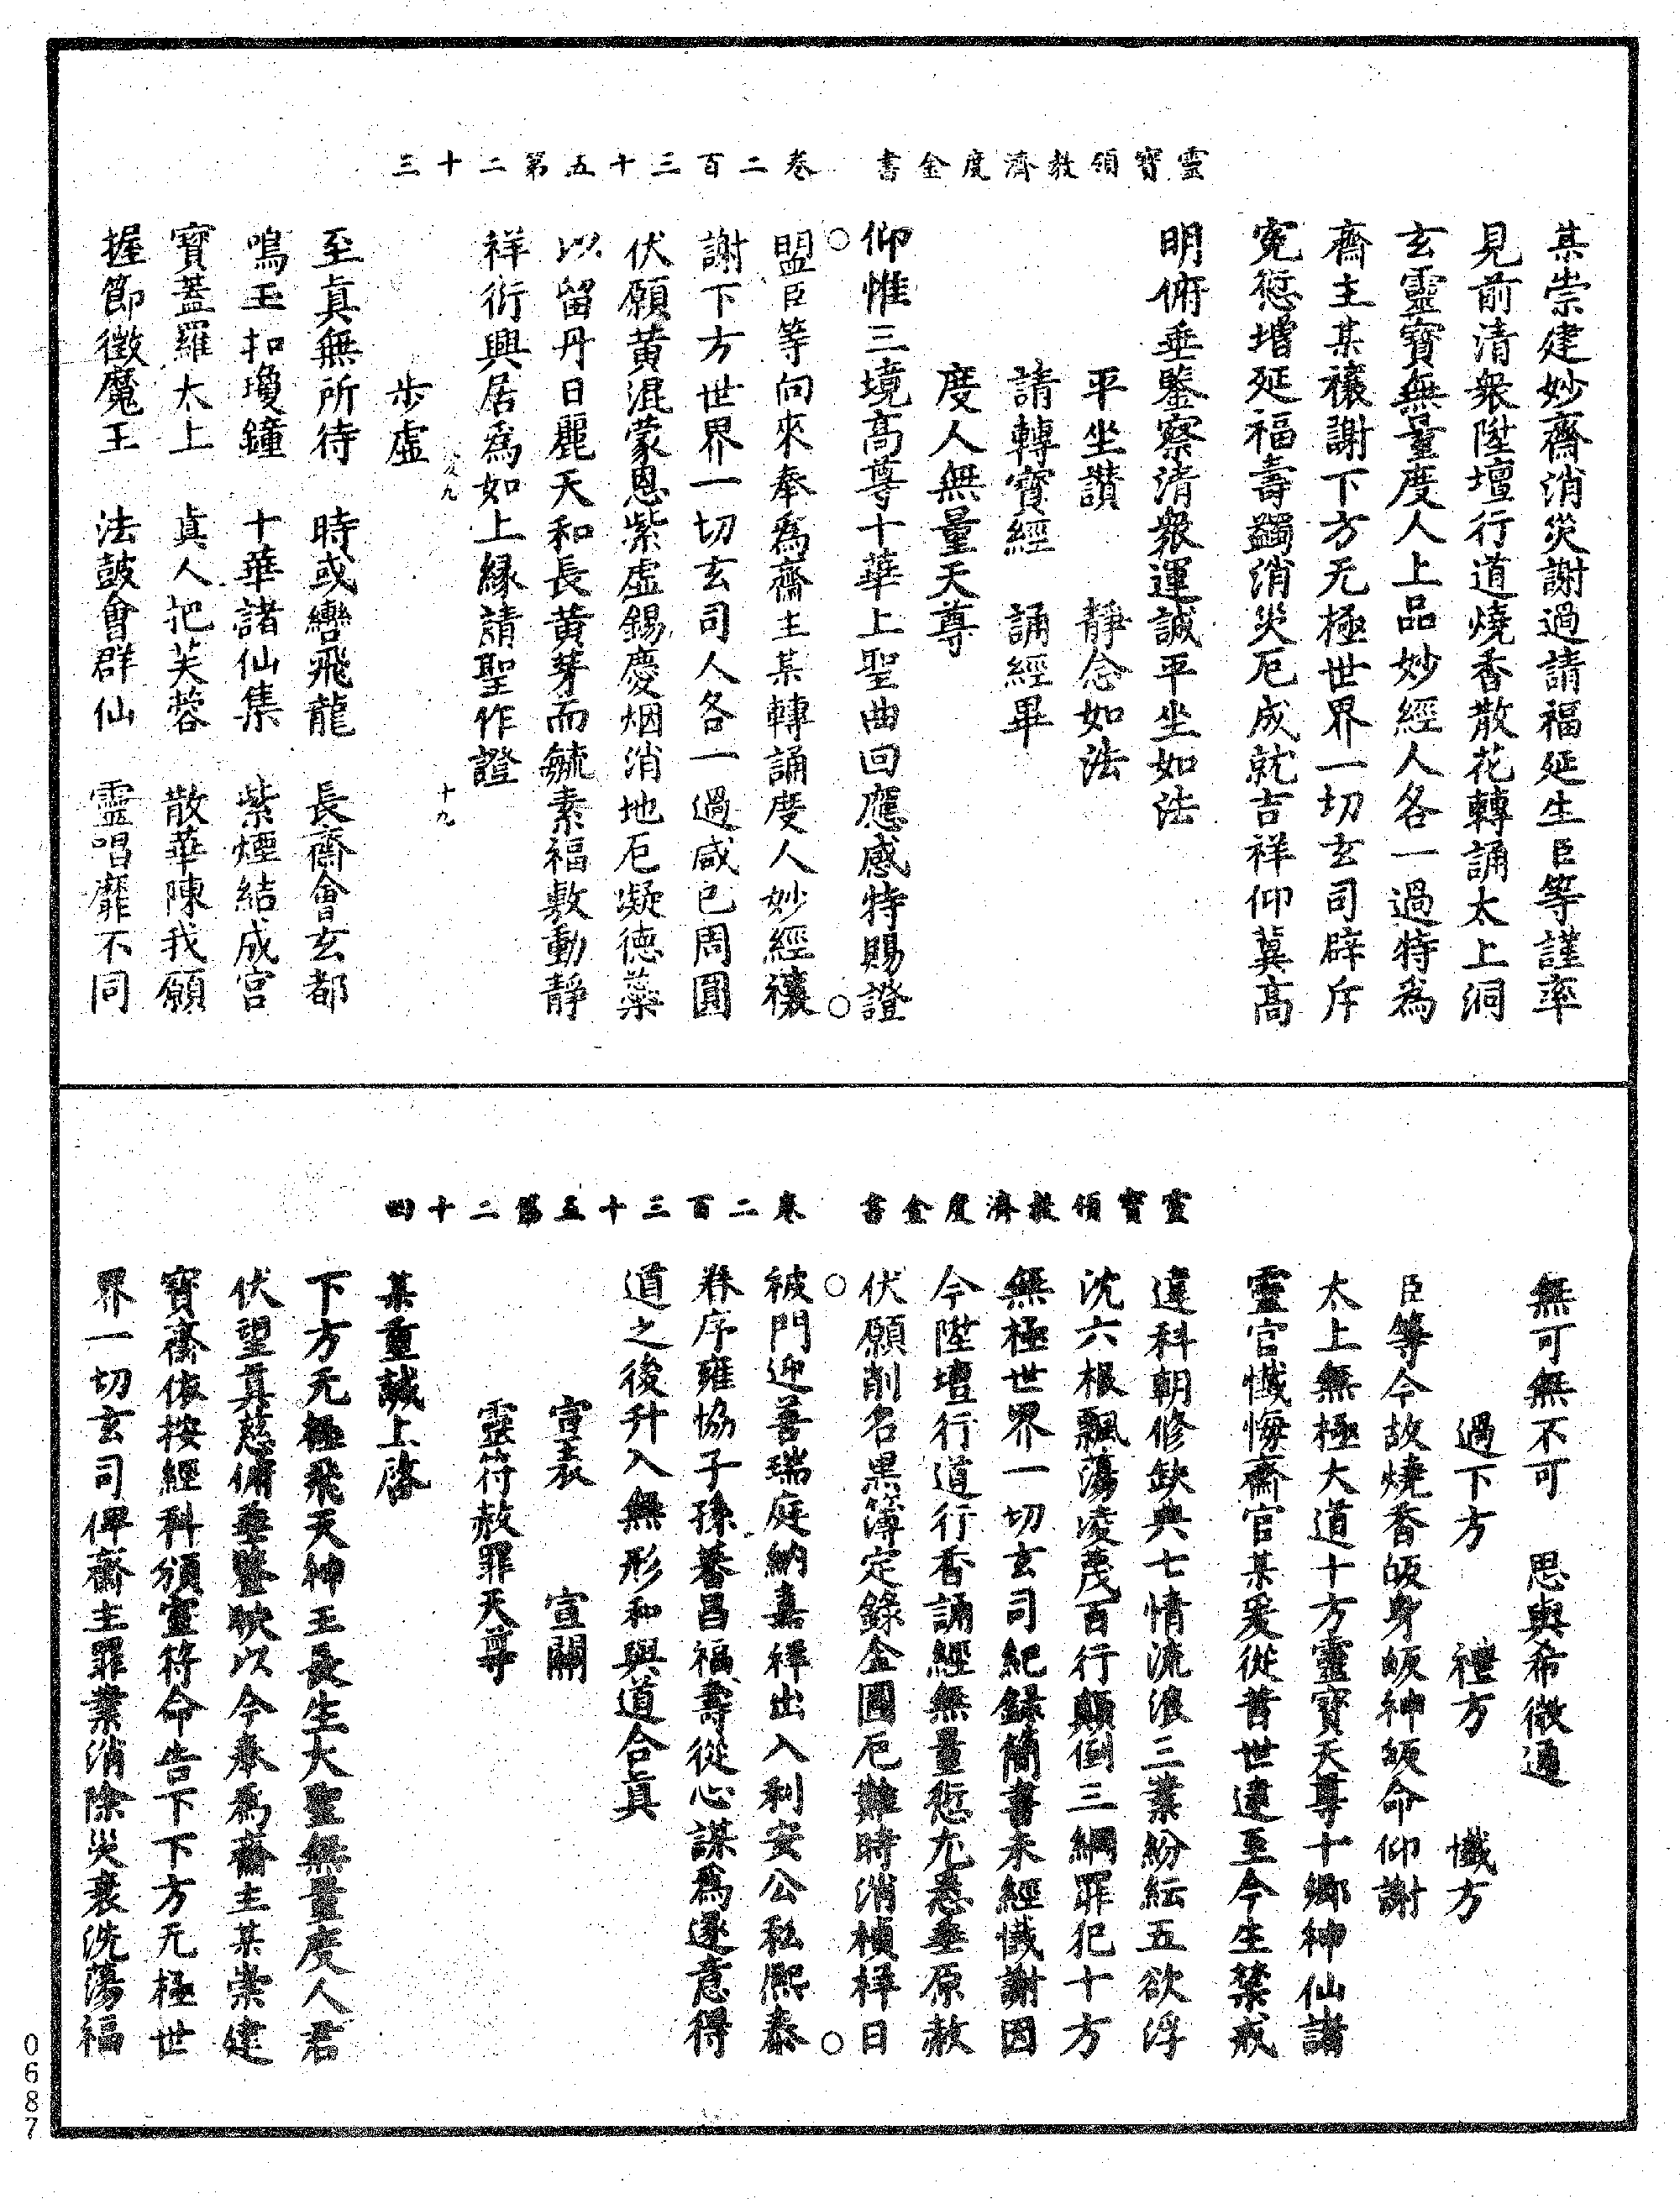 靈寶領教濟度金書　卷二百三十五第二十三
某崇建妙齋消災謝過請福延生臣等謹率
見前清衆陞壇行道燒香散花轉誦太上洞
玄靈寶無量度人上品妙經人各一過特為
齋主某禳謝下方无極世界一切玄司辟斥
寃愆增延福壽蠲消災厄成就吉祥仰冀高
明俯垂鑒察清衆運誠平坐如法
平坐讚　靜念如法
請轉寶經　誦經畢
度人無量天尊
仰惟三境高尊十華上聖曲回應感特賜證
盟臣等向來奉為齋主某轉誦度人妙經禳
謝下方世界一切玄司人各一過咸已周圓
伏願黄混蒙恩紫虛錫慶烟消地厄凝德蘂
以留丹日麗天和長黄芽而毓素福敷動靜
祥衍興居為如上緣請聖作證
十九
步虛
至真無所待　時或轡飛龍　長齋會玄都
鳴玉扣瓊鐘　十華諸仙集　紫煙結成宮
寶蓋羅太上　真人把芙蓉　散華陳我願
握節徵魔王　法鼓會群仙　靈唱靡不同
靈寶領教濟度金書　卷二百三十五第二十四
無可無不可　思與希微通
過下方　禮方　懺方
臣等今故燒香皈身皈神皈命仰謝
太上無極大道十方靈寶天尊十鄉神仙諸
靈官懺悔齋官某爰從昔世逮至今生禁戒
違科朝修缺典七情流浪三業紛紜五欲浮
沈六根飄蕩凌茂百行顛倒三綱罪犯十方
無極世界一切玄司紀録簡書未經懺謝因
今陞壇行道行香誦經無量愆尤悉垂原赦
伏願削名黒簿定錄金圖厄難時消楨祥日
被門迎善瑞庭納嘉祥出入利安公私熙泰
眷序雍協子孫蕃昌福壽從心謀為遂意得
道之後升入無形和與道合真
宣表　宣關
靈符赦罪天尊
某重誠上啓
下方无極飛天神王長生大聖無量度人君
伏望真慈俯垂鑒映以今奉為齋主某崇建
寶齋依按經科頒靈符命告下下方无極世
界一切玄司俾齋主罪業消除災衰洗蕩福
0687